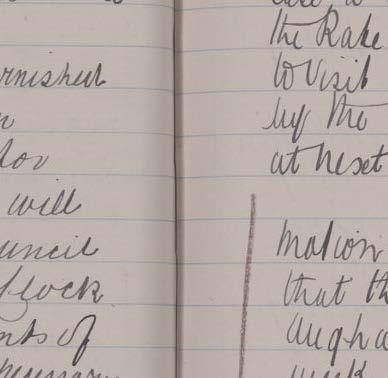 rnished
n
dov
will
uncil
Clock
nts of
the Rate
to visit
by the
at next
Motion
that th
week